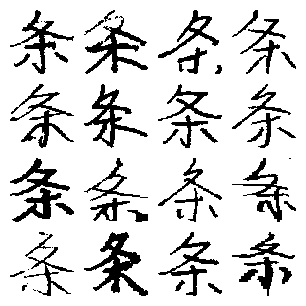 条条条条
条条条条
条条条条
条条条条